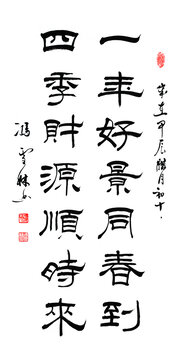 歲在甲辰臘月初十
一年好景同春到
四季財源順時來
馮雪林书